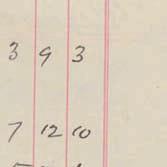 3 9 3
7 12 10